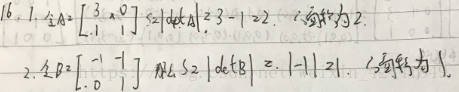 16. 1. 令A=[3 0
1 1] S=|detA|=3-1=2. ∴面积为2.
2. 令B=[-1 -1
0 1] 那么S=|detB|=|-1|=1. ∴面积为1.